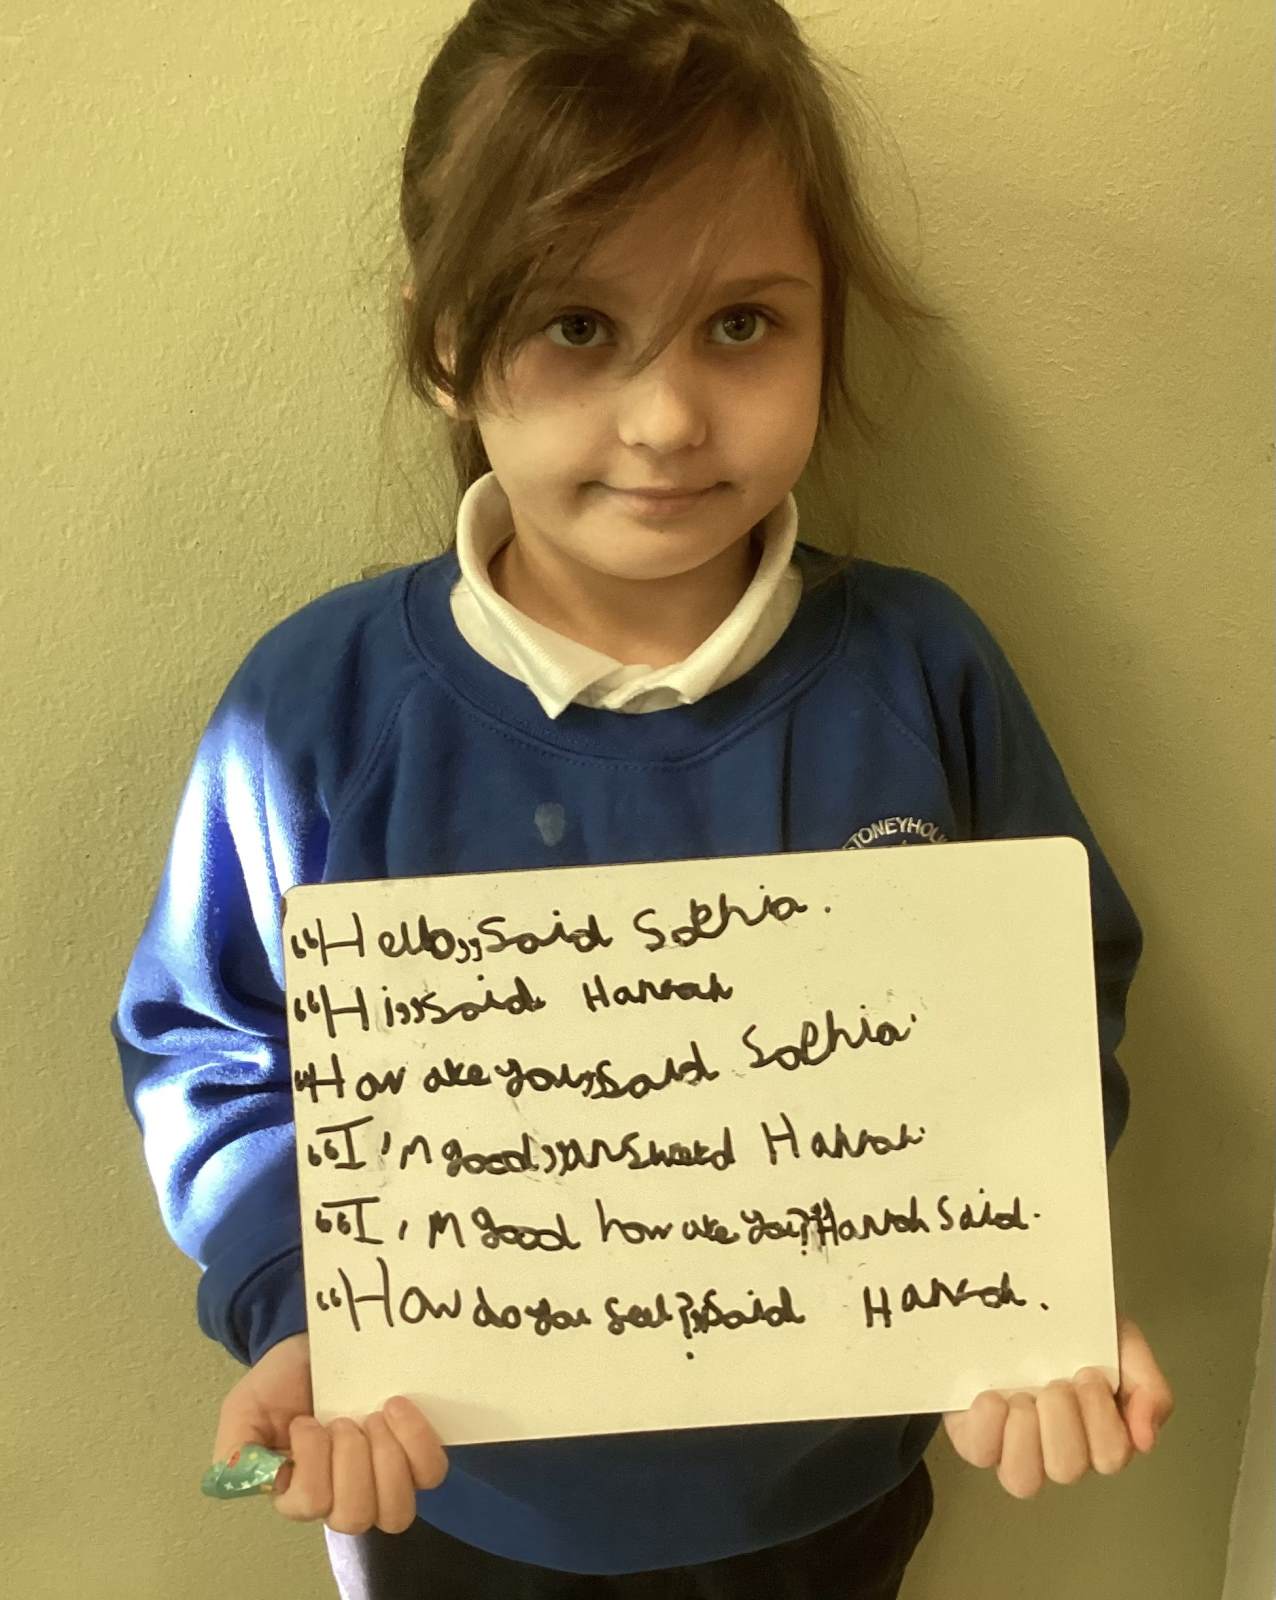 STONEYHOU
“Hello,” said Sophia.
“Hi,” said Hannah
“How are you,” said Sophia.
“I'm good,” answered Hannah.
“I'm good how are you?” Hannah said.
“How do you feel?” said Hannah.